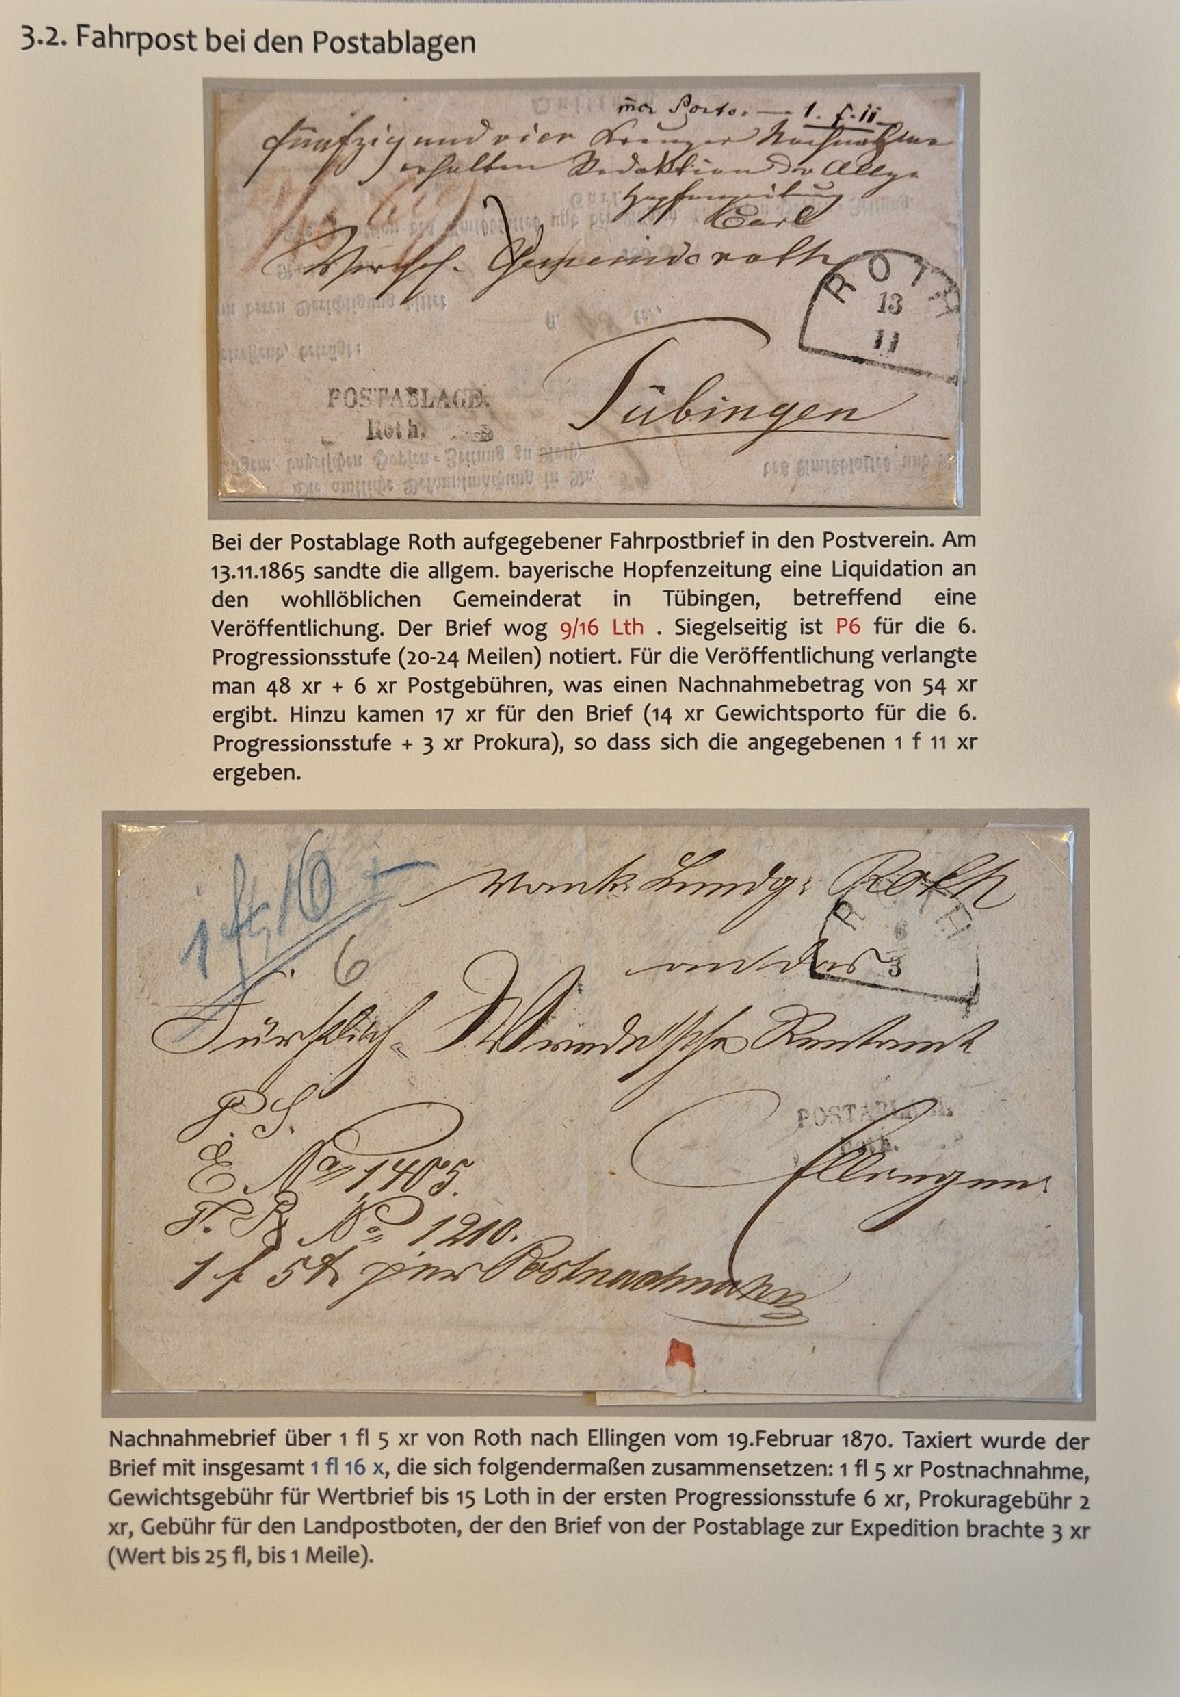 3.2. Fahrpost bei den Postablagen
Porto. — 1. f. 11
fünfzig und vier Kreuzer Nachnahme
erhalten Redaktion der Allg.
Hopfenzeitung
Carl
Gemeinderath
ROTH
13
11
Tübingen
POSTABLAGE.
Roth.
Bei der Postablage Roth aufgegebener Fahrpostbrief in den Postverein. Am
13.11.1865 sandte die allgem. bayerische Hopfenzeitung eine Liquidation an
den wohllöblichen Gemeinderat in Tübingen, betreffend eine
Veröffentlichung. Der Brief wog 9/16 Lth . Siegelseitig ist P6 für die 6.
Progressionsstufe (20-24 Meilen) notiert. Für die Veröffentlichung verlangte
man 48 xr + 6 xr Postgebühren, was einen Nachnahmebetrag von 54 xr
ergibt. Hinzu kamen 17 xr für den Brief (14 xr Gewichtsporto für die 6.
Progressionsstufe + 3 xr Prokura), so dass sich die angegebenen 1 f 11 xr
ergeben.
1 f 16
6
Roth
ROTH
6
3
an das
Fürstlich Wredesche Rentamt
P. S.
POSTABLAGE.
Roth.
Ellingen
E. No 1405.
T. R. No 1210.
1 f 5 x per Postnachnahme
Nachnahmebrief über 1 fl 5 xr von Roth nach Ellingen vom 19.Februar 1870. Taxiert wurde der
Brief mit insgesamt 1 fl 16 x, die sich folgendermaßen zusammensetzen: 1 fl 5 xr Postnachnahme,
Gewichtsgebühr für Wertbrief bis 15 Loth in der ersten Progressionsstufe 6 xr, Prokuragebühr 2
xr, Gebühr für den Landpostboten, der den Brief von der Postablage zur Expedition brachte 3 xr
(Wert bis 25 fl, bis 1 Meile).